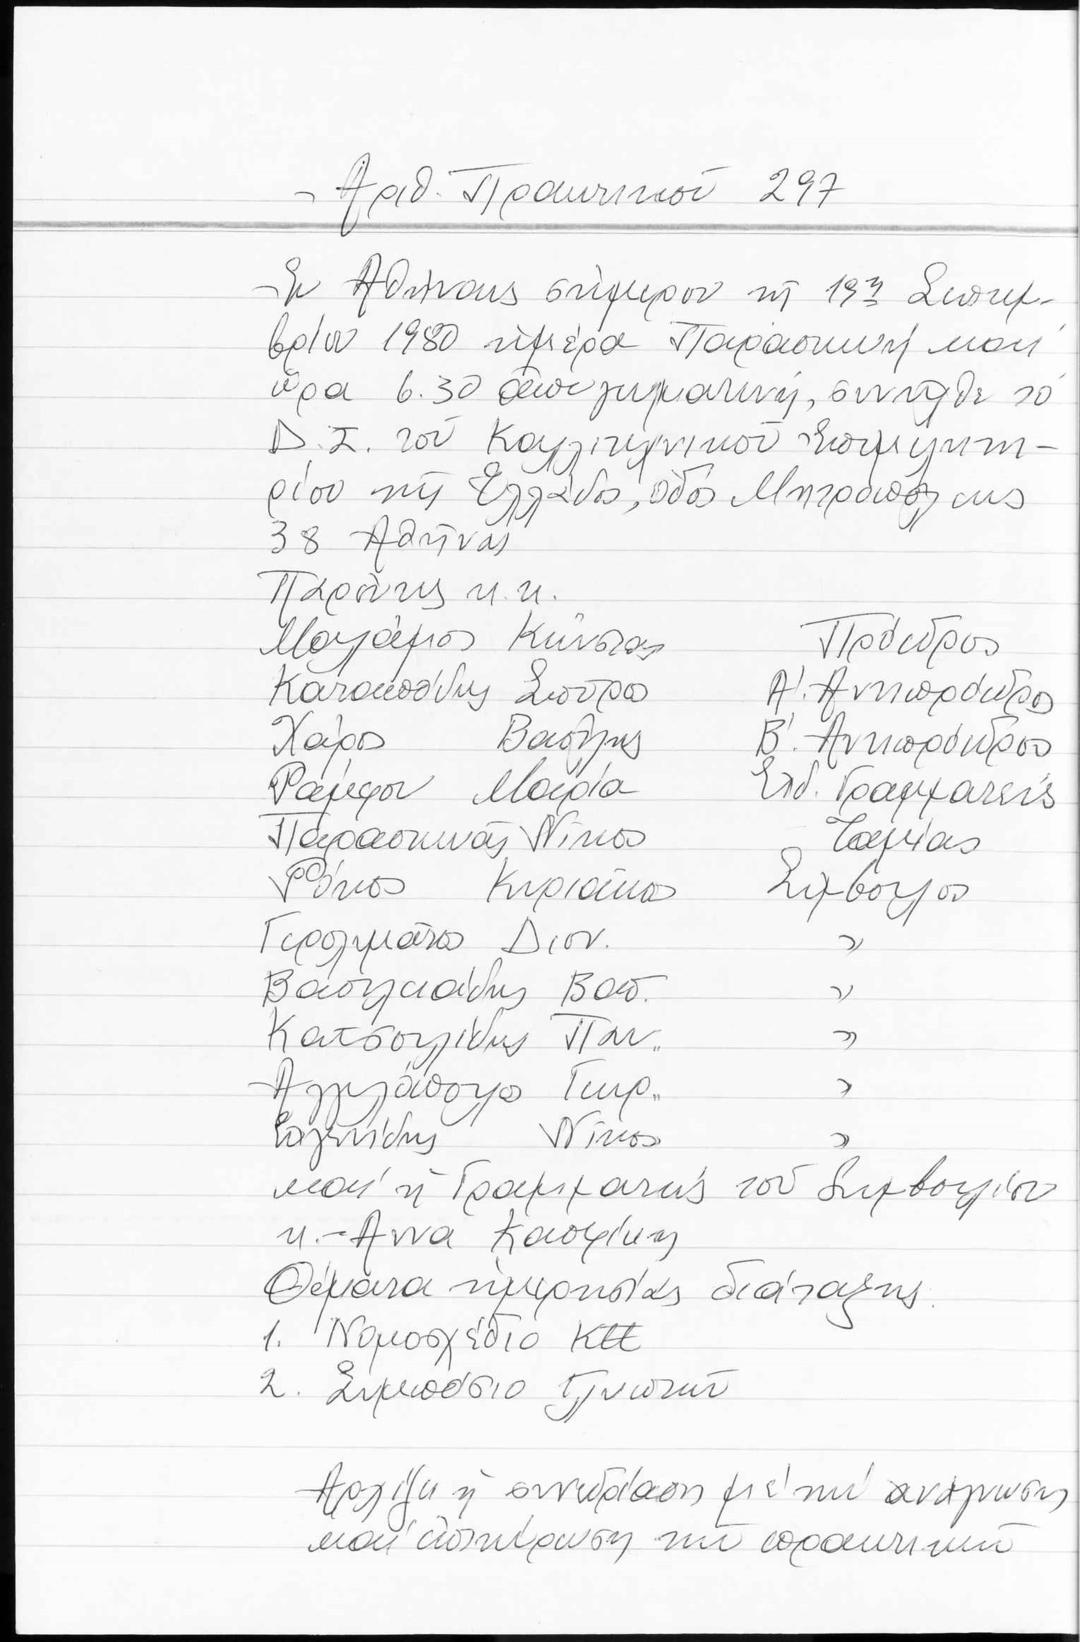 Ἀριθ. Πρακτικοῦ 297
Ἐν Ἀθήναις σήμερον τῇ 19ῃ Σεπτεμ-
βρίου 1980 ἡμέρα Παρασκευή καί
ὥρα 6.30 ἀπογευματινή, συνῆλθε τό
Δ.Σ. τοῦ Καλλιτεχνικοῦ Ἐπιμελητη-
ρίου τῆς Ἑλλάδος, ὁδός Μητροπόλεως
38 Ἀθῆνας
Παρόντες κ.κ.
Μαλάμος Κώστας Πρόεδρος
Καταπόδης Σπῦρος Α΄. Ἀντιπρόεδρος
Χάρος Βασίλης Β΄. Ἀντιπρόεδρος
Ραμφου Μαρία Εἰδ. Γραμματεύς
Παρασκευᾶς Νῖκος Ταμίας
Ρόκος Κυριᾶκος Σύμβουλος
Γερολυμᾶτος Διον. "
Βασιλειάδης Βασ. "
Κατσουλίδης Παν. "
Ἀγγελόπουλος Γεωρ. "
Νῖκος "
καί ἡ Γραμματεύς τοῦ Συμβουλίου
κ. Ἄννα
Θέματα ἡμερησίας διάταξης.
1. Νομοσχέδιο ΚΕΕ
2. Συμπόσιο Γλυπτῶν
Ἀρχίζει ἡ συνεδρίαση μέ τήν ἀνάγνωση
καί ἐπικύρωση τῶν πρακτικῶν